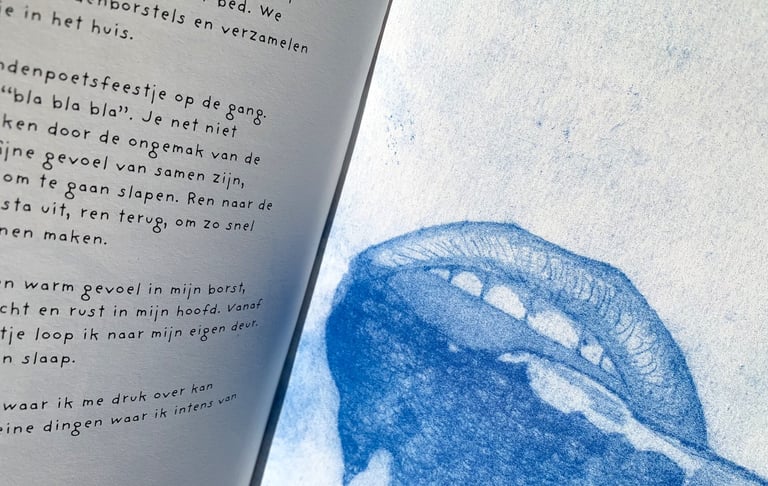 bed. We
en verzamelen
je in het huis.
op de gang.
“bla bla bla”. Je net niet
door de ongemak van de
gevoel van samen zijn,
om te gaan slapen. Ren naar de
uit, ren terug, om zo snel
maken.
warm gevoel in mijn borst,
en rust in mijn hoofd. Vanaf
loop ik naar mijn eigen deur.
slaap.
waar ik me druk over kan
dingen waar ik intens van